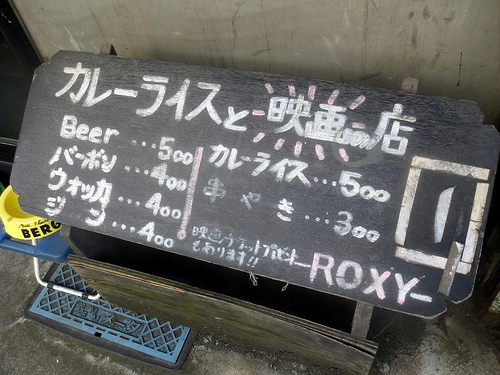 カレーライスと映画の店
Beer …500
バーボン …400
ウォッカ …400
ジン …400
カレーライス…500
串やき…300
映画チケットプレゼント
あります!!
-ROXY-
BERG